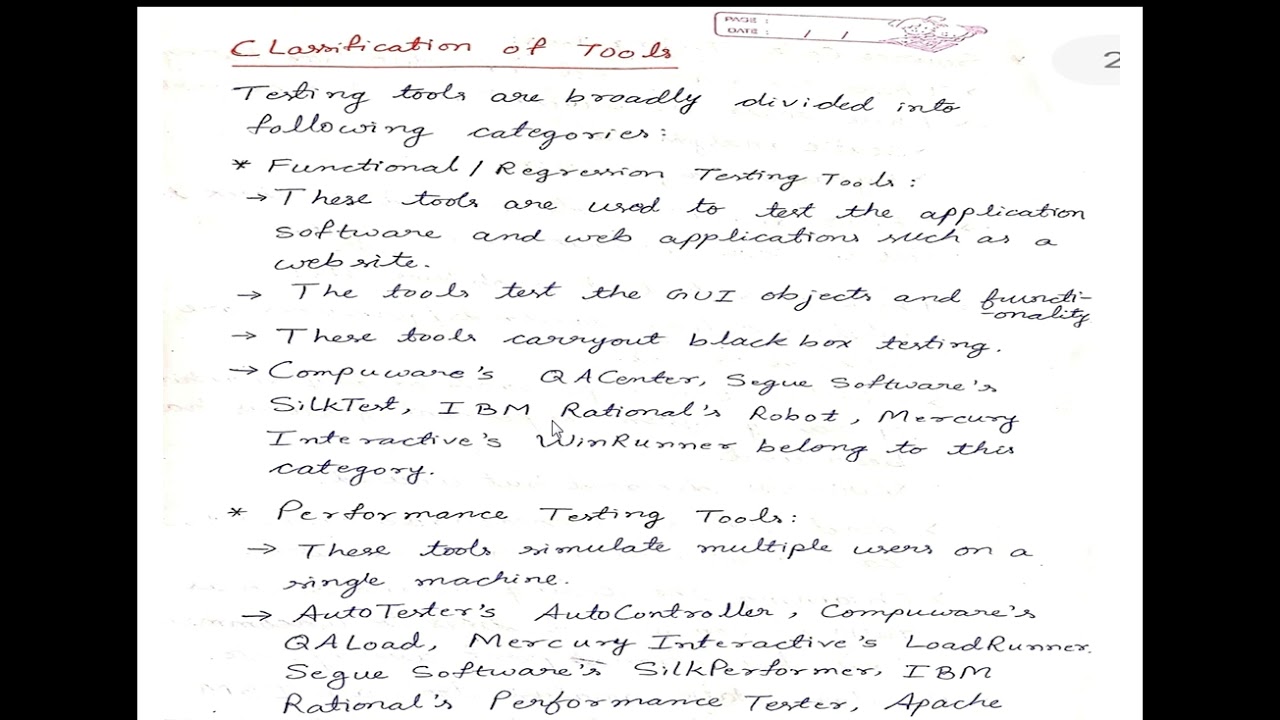 PAGE :
DATE : / /
2
Classification of Tools
Testing tools are broadly divided into
following categories:
* Functional / Regression Testing Tools :
→ These tools are used to test the application
software and web applications such as a
website.
→ The tools test the GUI objects and functi-
-onality
→ These tools carryout black box testing.
→ Compuware's QACenter, Segue Software's
SilkTest, IBM Rational's Robot, Mercury
Interactive's WinRunner belong to this
category.
* Performance Testing Tools:
→ These tools simulate multiple users on a
single machine.
→ AutoTester's AutoController, Compuware's
QALoad, Mercury Interactive's LoadRunner.
Segue Software's SilkPerformer, IBM
Rational's Performance Tester, Apache